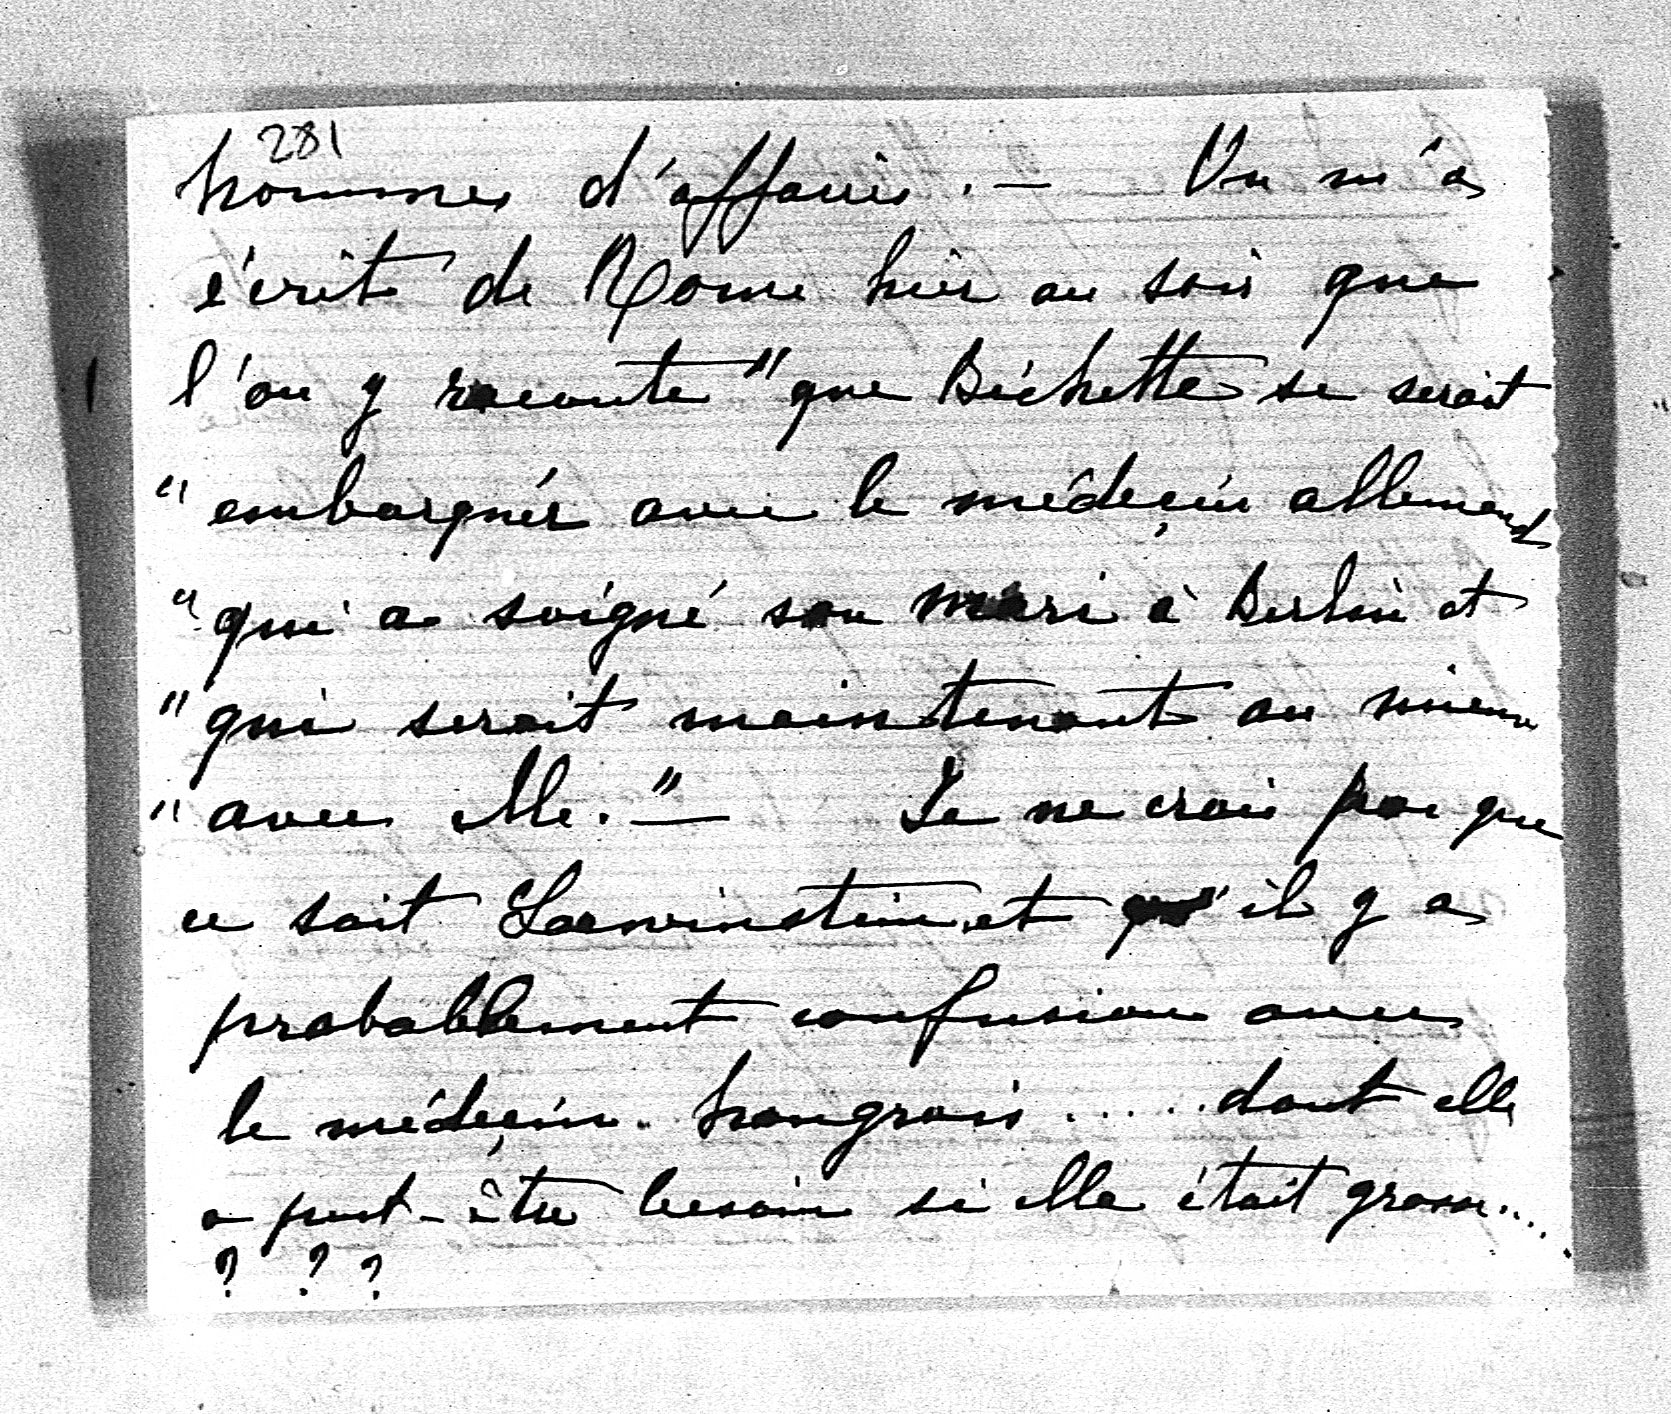 281
hommes d'affaires. — On m'a
écrit de Rome hier au soir que
l'on y raconte "que Béchette se serait
"embarquée avec le médeçin allemand
"qui a soigné son mari à Berlin et
"qui serait maintenant au mieux
"avec elle." — Je ne crois pas que
ce soit Loewinstein et qu'il y a
probablement confusion avec
le médeçin hongrois ..... dont elle
a peut-être besoin si elle était grosse....
? ? ?